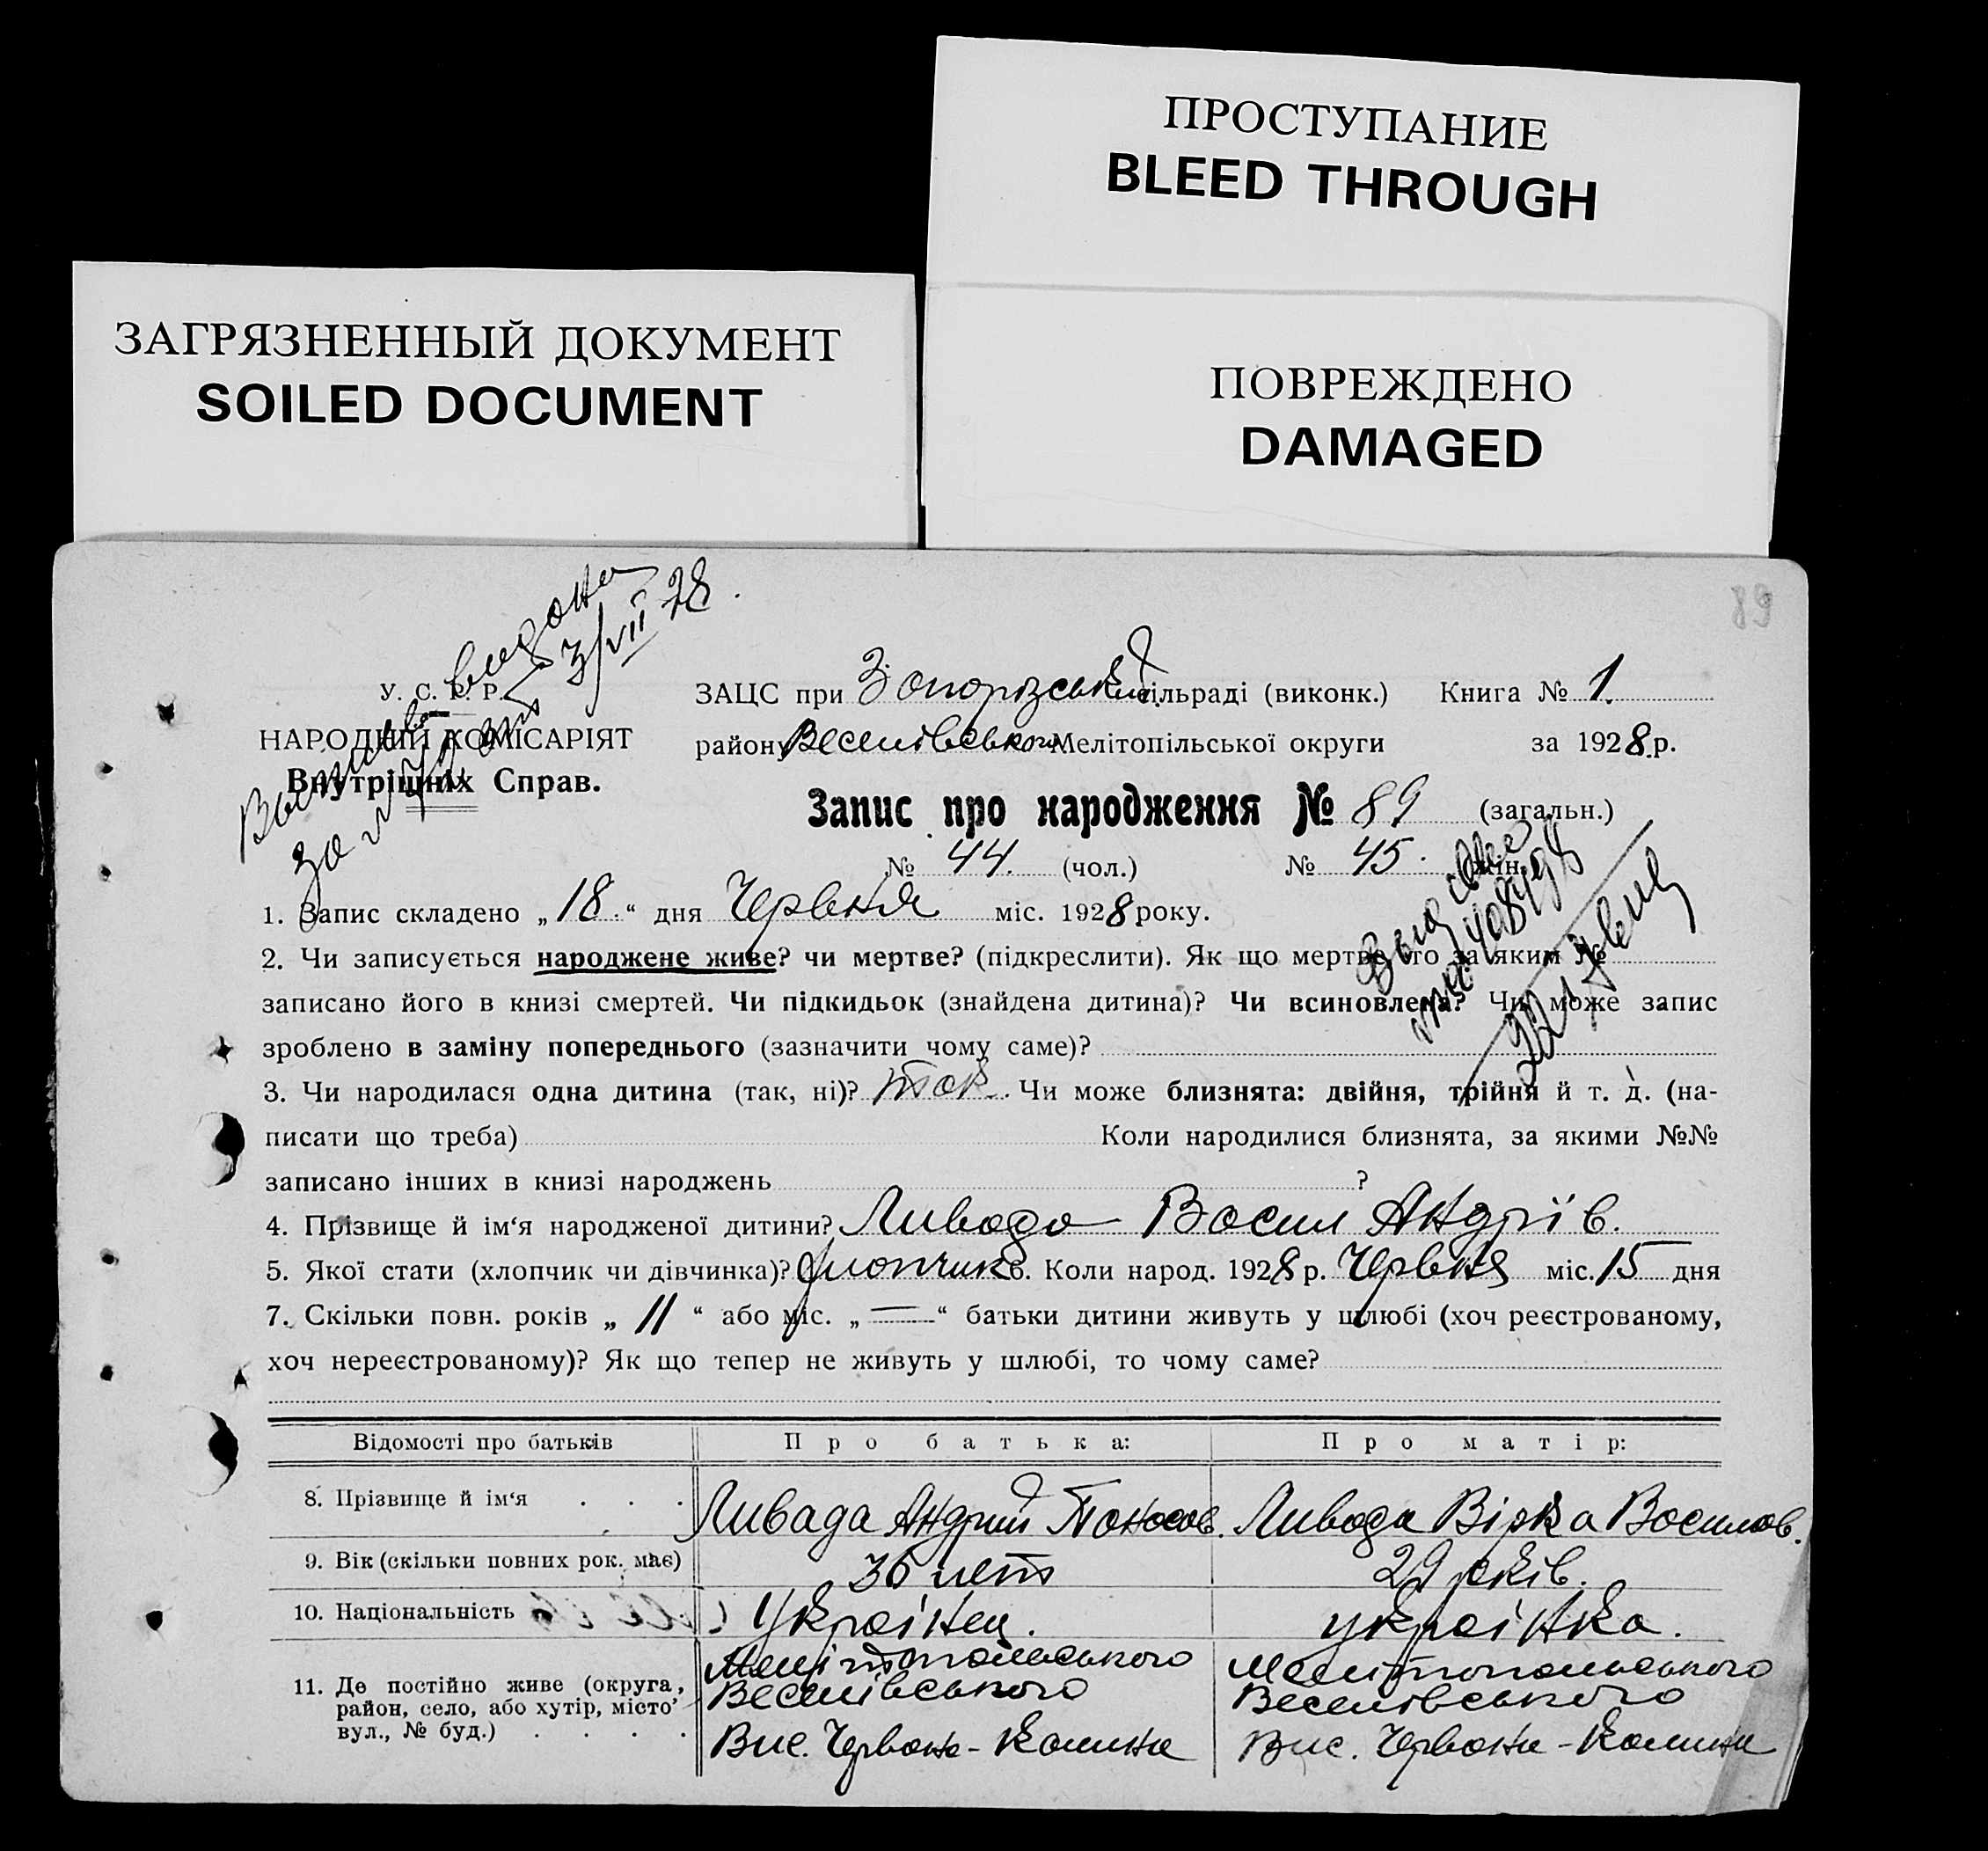 ПРОСТУПАНИЕ
BLEED THROUGH
ЗАГРЯЗНЕННЫЙ ДОКУМЕНТ
SOILED DOCUMENT
ПОВРЕЖДЕНО
DAMAGED
89
видана
3/VII 28
У. С. Р. Р.
НАРОДНІЙ КОМІСАРІЯТ
Внутрішніх Справ.
за №
ЗАЦС при Запорізський сільраді (виконк.) Книга № 1.
району Веселівського Мелітопільської округи за 1928 р.
Запис про народження № 89 (загальн.)
№ 44. (чол.) № 45. (жін.)
1. Запис складено „18.“ дня Червня міс. 1928 року.
2. Чи записується народжене живе? чи мертве? (підкреслити). Як що мертве, то за яким №
записано його в книзі смертей. Чи підкидьок (знайдена дитина)? Чи всиновлена? Чи може запис
зроблено в заміну попереднього (зазначити чому саме)?
3. Чи народилася одна дитина (так, ні)? так. Чи може близнята: двійня, трійня й т. д. (на-
писати що треба) Коли народилися близнята, за якими №№
записано інших в книзі народжень ?
4. Прізвище й ім‘я народженої дитини? Ливада Васил Андріїв.
5. Якої стати (хлопчик чи дівчинка)? хлопчик 6. Коли народ. 1928 р. Червня міс. 15 дня
7. Скільки повн. років „ 11 “ або міс. „ — “ батьки дитини живуть у шлюбі (хоч реєстрованому,
хоч нереєстрованому)? Як що тепер не живуть у шлюбі, то чому саме?
Відомості про батьків Про батька: Про матір:
8. Прізвище й ім‘я . . . Ливада Андрий Панасов. Ливада Вірка Василов.
9. Вік (скільки повних рок. має) 36 лет 29 років.
10. Національність Українец. українка.
11. Де постійно живе (округа, район, село, або хутір, місто’ вул., № буд.) . . . .
Мелітопольського Мелитопольського
Веселівського Веселівського
Вис. Червона-Калина Вис. Червона-Калина